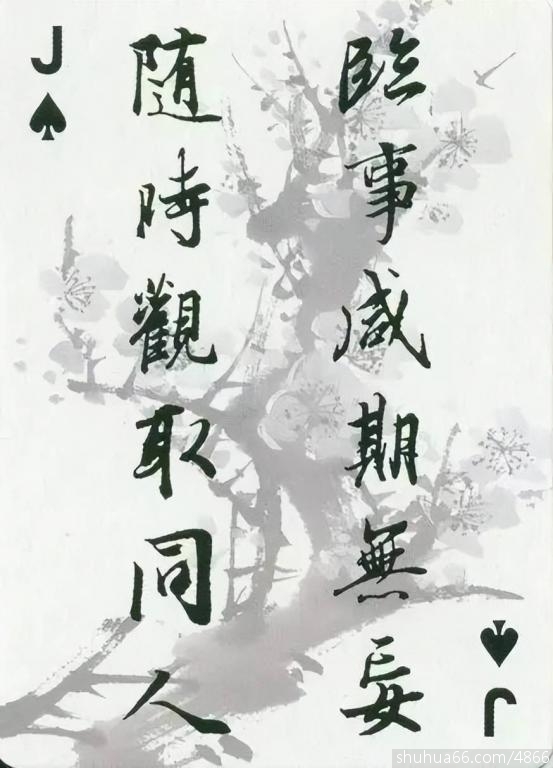 J
臨事咸期無妄
随時觀取同人
J
shuhua66.com/4866